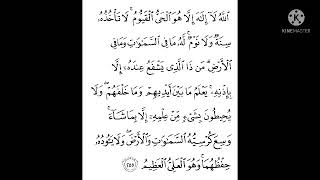 ٱللَّهُ لَآ إِلَٰهَ إِلَّا هُوَ ٱلْحَىُّ ٱلْقَيُّومُ ۚ لَا تَأْخُذُهُۥ
سِنَةٌ وَلَا نَوْمٌ ۚ لَّهُۥ مَا فِى ٱلسَّمَٰوَٰتِ وَمَا فِى
ٱلْأَرْضِ ۗ مَن ذَا ٱلَّذِى يَشْفَعُ عِندَهُۥٓ إِلَّا
بِإِذْنِهِۦ ۚ يَعْلَمُ مَا بَيْنَ أَيْدِيهِمْ وَمَا خَلْفَهُمْ ۖ وَلَا
يُحِيطُونَ بِشَىْءٍ مِّنْ عِلْمِهِۦٓ إِلَّا بِمَا شَآءَ ۚ
وَسِعَ كُرْسِيُّهُ ٱلسَّمَٰوَٰتِ وَٱلْأَرْضَ ۖ وَلَا يَـُٔودُهُۥ
حِفْظُهُمَا ۚ وَهُوَ ٱلْعَلِىُّ ٱلْعَظِيمُ ٢٥٥
KINEMASTER